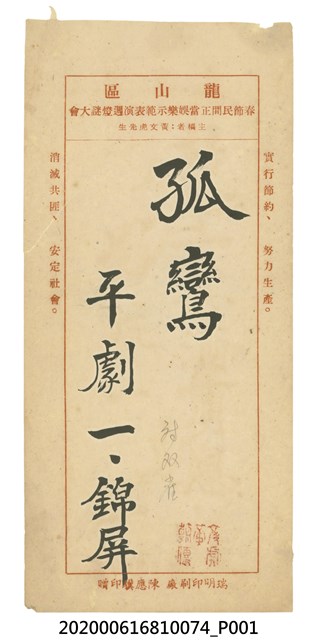 龍山區
春節民間正當娛樂示範表演週燈謎大會
主編者：黃文虎先生
實行節約、努力生產。
孤鸞
平劇一、錦屏
双雀
消滅共匪、安定社會。
瑞明印刷廠 陳應騰印贈
202000616810074_P001